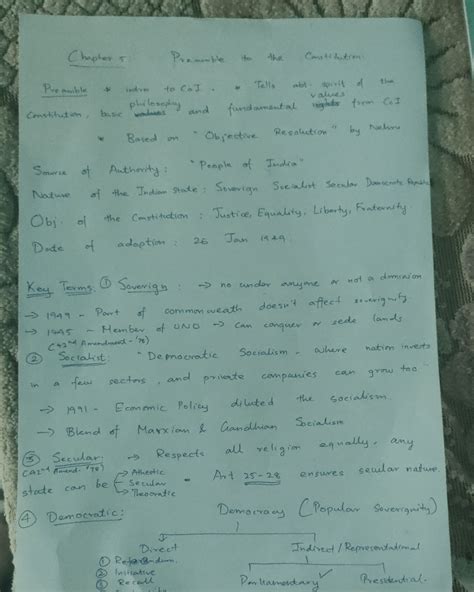 Chapter 5 Preamble to the Constitution
Preamble * intro to CoI. * Tells abt. spirit of the
Constitution, basic values philosophy and fundamental rights values form CoI
* Based on "Objective Resolution" by Nehru
Source of Authority : "People of India"
Nature of the Indian State : Soverign Socialist Secular Democratic Republic
Obj. of the Constitution : Justice, Equality, Liberty, Fraternity
Date of adoption : 26 Jan 1949.
Key Terms: ① Soverign : → no under anyone or not a dominion
→ 1949 - Part of commonweath doesn't affect soverignity
→ 1945 - Member of UNO → can conquer or sede lands
(42nd Amendment - '76)
② Socialist: "Depmocratic Socialism - where nation invests
in a few sectors, and private companies can grow too"
→ 1991 - Economic Policy diluted the socialism.
→ Blend of Marxian & Gandhian Socialism
③ Secular → Respects all religion equally, any
(42nd Amend. '76)
state can be → Atheistic → Secular → Theocratic * Art 25-28 ensures seular nature.
④ Democratic: Democracy (Popular Soverignity)
Direct Indirect / Representational
① Referendum.
② Initiative Parliamentary ✓ Presidential.
③ Recall